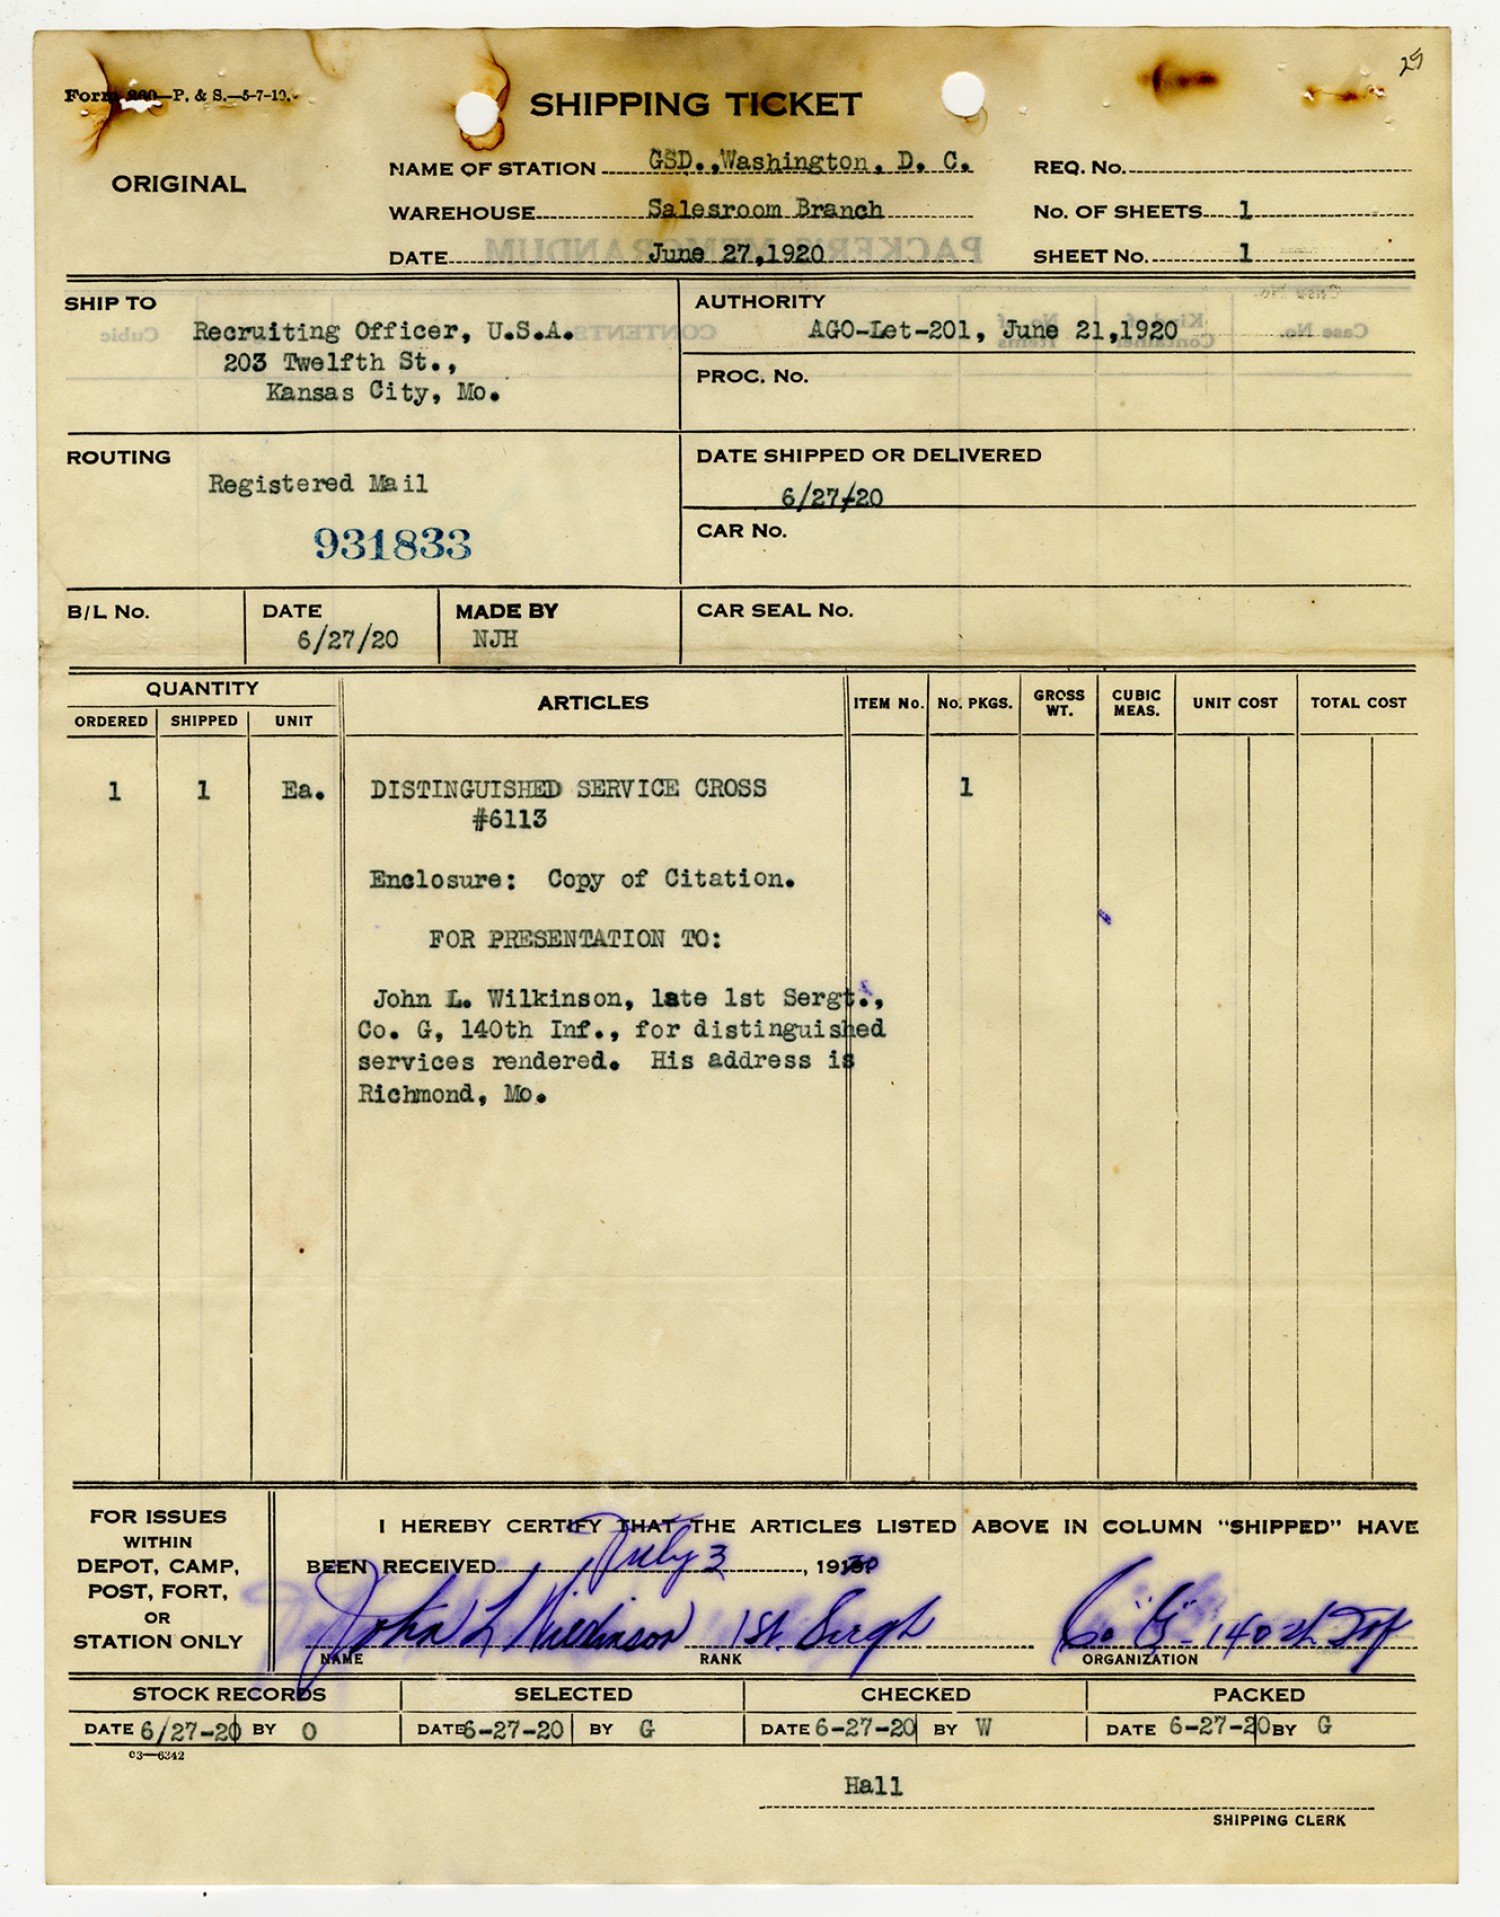 25
Form 260—P. & S.—5-7-19.
SHIPPING TICKET
ORIGINAL
NAME OF STATION GSD.,Washington, D. C.
REQ. No.
WAREHOUSE Salesroom Branch
No. OF SHEETS 1
DATE June 27,1920
SHEET No. 1
PACKER'S MEMORANDUM
SHIP TO
Recruiting Officer, U.S.A.
203 Twelfth St.,
Kansas City, Mo.
AUTHORITY
AGO-Let-201, June 21,1920
Cubic
CONTENTS
No. of Items
Kind of Container
Case No.
PROC. No.
ROUTING
Registered Mail
931833
DATE SHIPPED OR DELIVERED
6/27/20
CAR No.
B/L No.
DATE
6/27/20
MADE BY
NJH
CAR SEAL No.
QUANTITY
ORDERED SHIPPED UNIT
ARTICLES
ITEM No.
No. PKGS.
GROSS WT.
CUBIC MEAS.
UNIT COST
TOTAL COST
1 1 Ea. DISTINGUISHED SERVICE CROSS 1
#6113
Enclosure: Copy of Citation.
FOR PRESENTATION TO:
John L. Wilkinson, late 1st Sergt.,
Co. G, 140th Inf., for distinguished
services rendered. His address is
Richmond, Mo.
FOR ISSUES
WITHIN
DEPOT, CAMP,
POST, FORT,
OR
STATION ONLY
I HEREBY CERTIFY THAT THE ARTICLES LISTED ABOVE IN COLUMN "SHIPPED" HAVE
BEEN RECEIVED July 3, 1920
John L Wilkinson 1st Sergt Co "G" 140th Inf
NAME RANK ORGANIZATION
STOCK RECORDS SELECTED CHECKED PACKED
DATE 6/27-20 BY O DATE 6-27-20 BY G DATE 6-27-20 BY W DATE 6-27-20 BY G
03—6342
Hall
SHIPPING CLERK